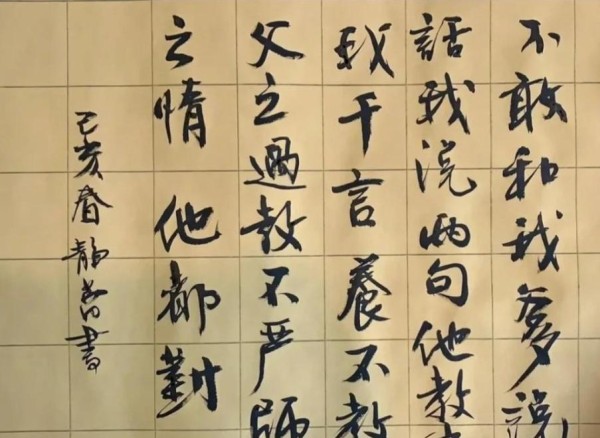 不敢和我爹說
話我说兩句他教
我千言養不教
父之過教不严師
之情 他都對
己亥春靜書